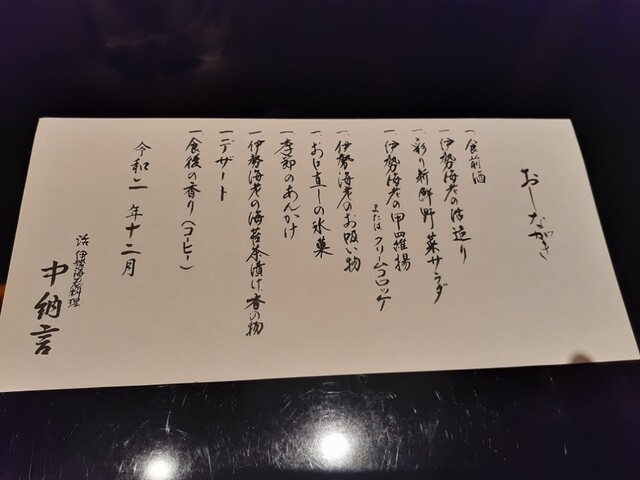 おしながき
一、食前酒
一、伊勢海老の活造り
一、彩り新鮮野菜サラダ
一、伊勢海老の甲羅揚
またはクリームコロッケ
一、伊勢海老のお吸い物
一、お口直しの氷菓
一、季節のあんかけ
一、伊勢海老の海苔茶漬け 香の物
一、デザート
一、食後の香り（コーヒー）
令和二年十二月
活伊勢海老料理
中納言